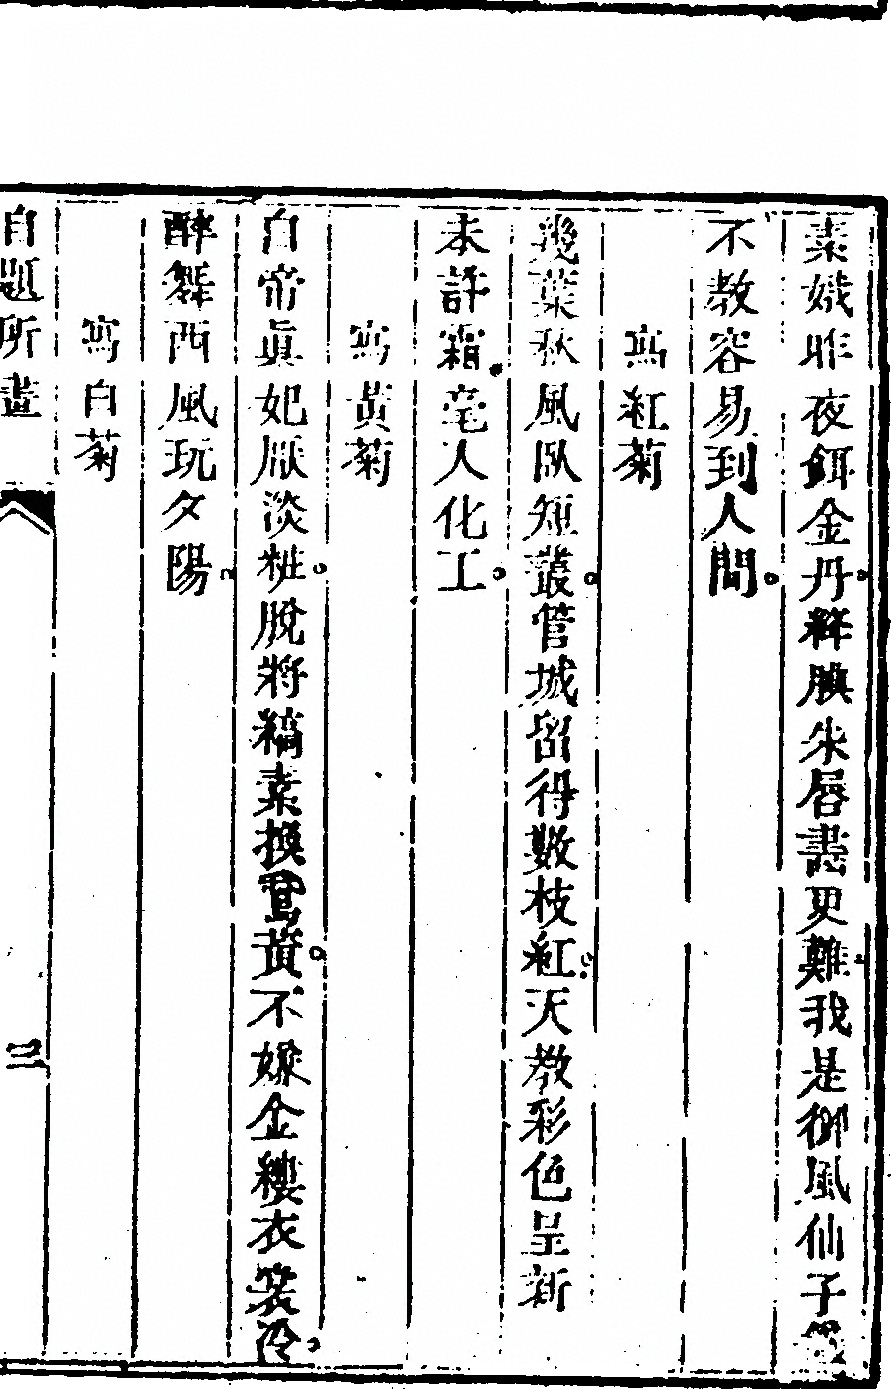 素娥昨夜餌金丹。絳腆朱唇畫更難。我是御風仙子
不教容易到人間。
寫紅菊
幾葉秋風臥短叢。管城留得數枝紅。天教彩色呈新
未許霜毫人化工。
寫黃菊
白帝眞妃厭淡粧。脫將縞素換鶯黃。不嫌金縷衣裳冷。
醉舞西風玩夕陽。
寫白菊
自題所畫 三